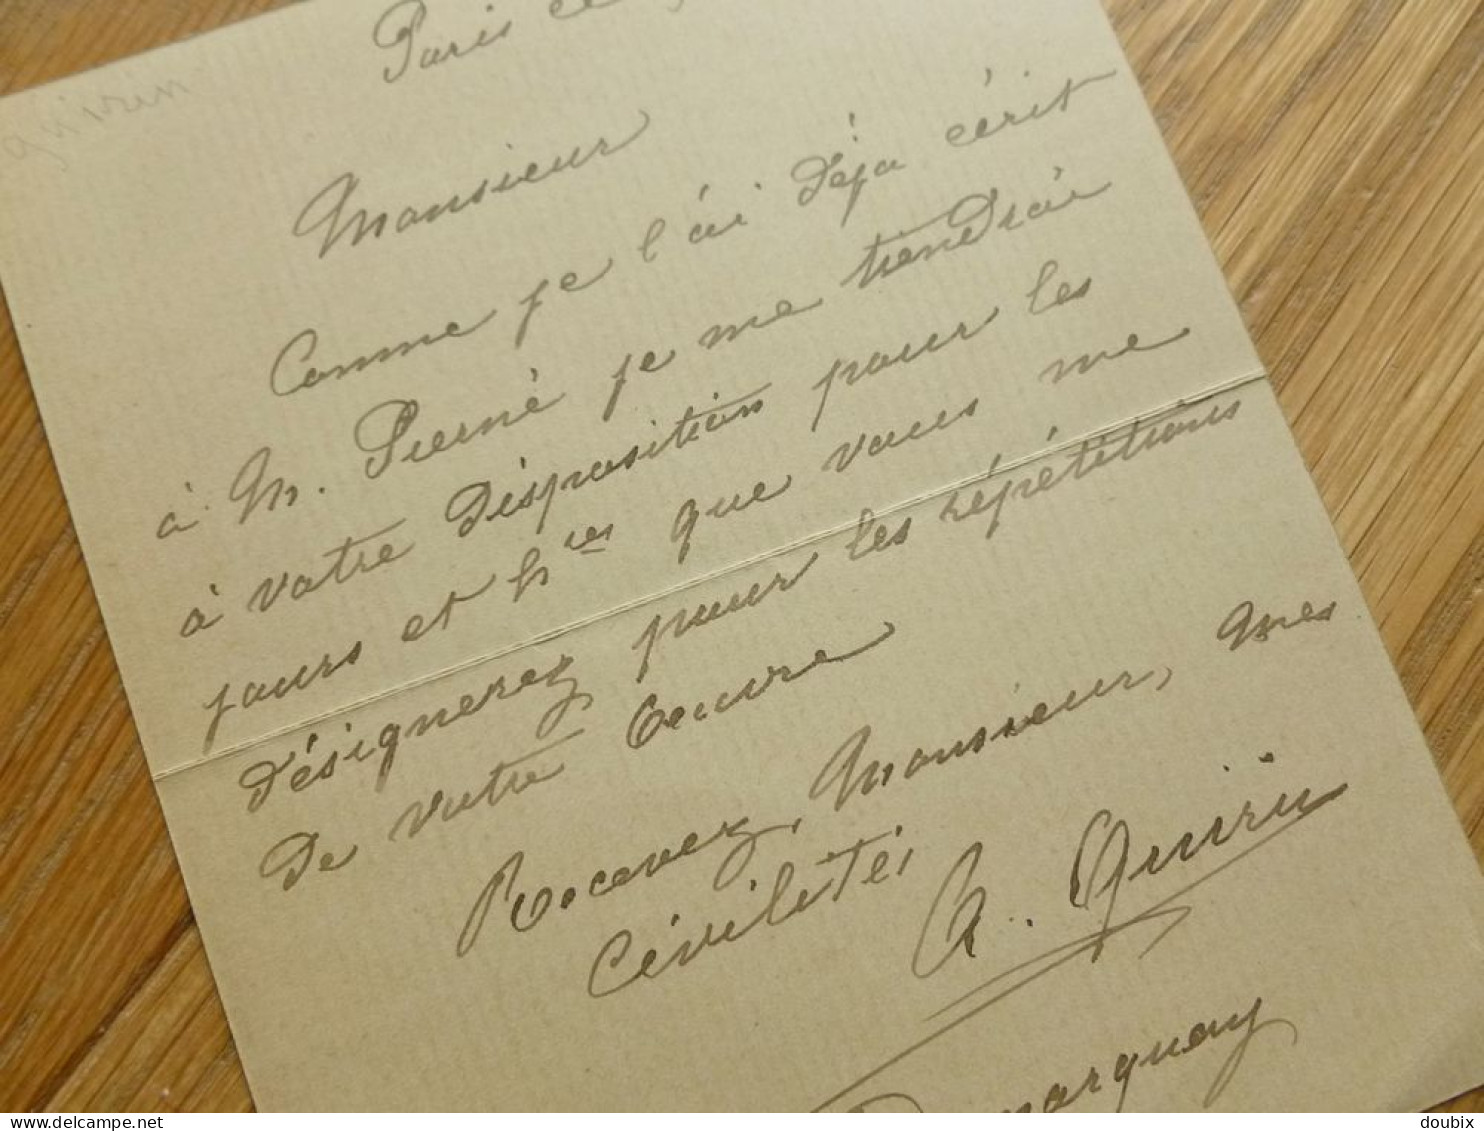 quirin
Paris ce
Monsieur
Comme je l'ai déja écrit
à M. Pierné je me tiendrai
à votre disposition pour les
jours et hres que vous me
désignerez pour les répétitions
de votre Oeuvre
Recevez, Monsieur, mes
Civilités,
A. Quirin
Demarquay
doubix